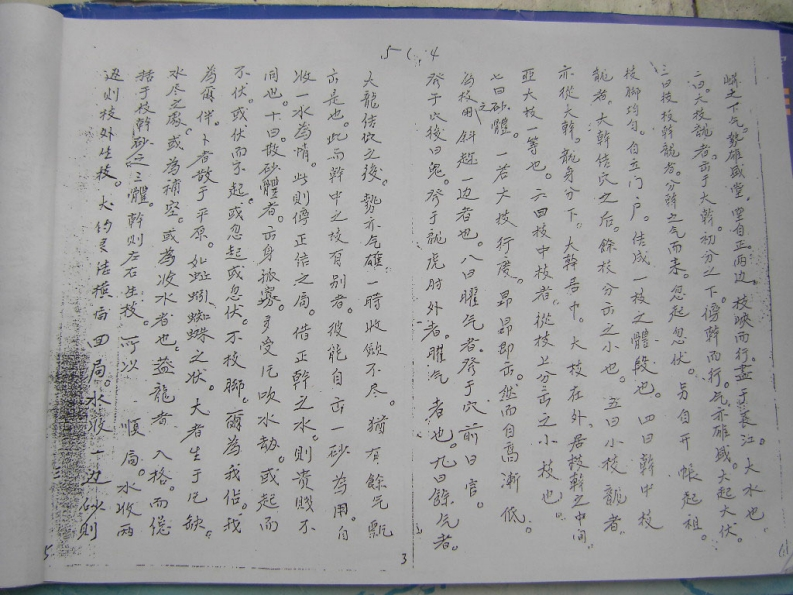 嶂之下气。勢雄盛堂。堂自正。两边枝映而行。盡于長江。大水也。
二曰。大枝龍者。出于大幹。初分之下。傍幹而行。气亦雄盛。大起大伏。
三曰枝幹龍者。分幹之气而来。忽起忽伏。另自开帳起祖。
枝脚均匀。自立门户。结成一枝之體段也。四曰幹中枝
龍者。大幹结穴之后。餘枝分出之小也。五曰小枝龍者
亦從大幹。龍身分下。大幹居中。大枝在外。居枝幹之中间。
亞大枝一等也。六曰枝中枝者。從枝上分出之小枝也。
七曰砂之體。一若大枝行度。昂昂即出。然而自高漸低。
为枝用。斜趨一边者也。八曰曜气者。發于穴前曰官。
發于穴後曰鬼。發于龍虎肘外者。曜气者也。九曰餘气者。
大龍结穴之後。勢亦气雄。一時收歛不尽。猶有餘气飄
出是也。此而幹中之枝有别者。彼能自出一砂为用。自
收一水为堂。此则傳正结之局。借正幹之水。则贵贱不
同也。十曰散砂體者。出身孤寡。多受风吹水劫。或起而
不伏。或伏而不起。或忽起或忽伏。不枝脚。爾为我佔。我
為爾伴。卜者散于平原。如蚯蚓。蜘蛛之状。大者生于风缺
水尽之處。或为補空。或为收水者也。蓋龍者 入格。而總
括于枝幹砂之三體。幹则左右生枝。可以 順局。水收两
迎则枝外生枝。大约是结横局 回局。水收一边砂则
3
5